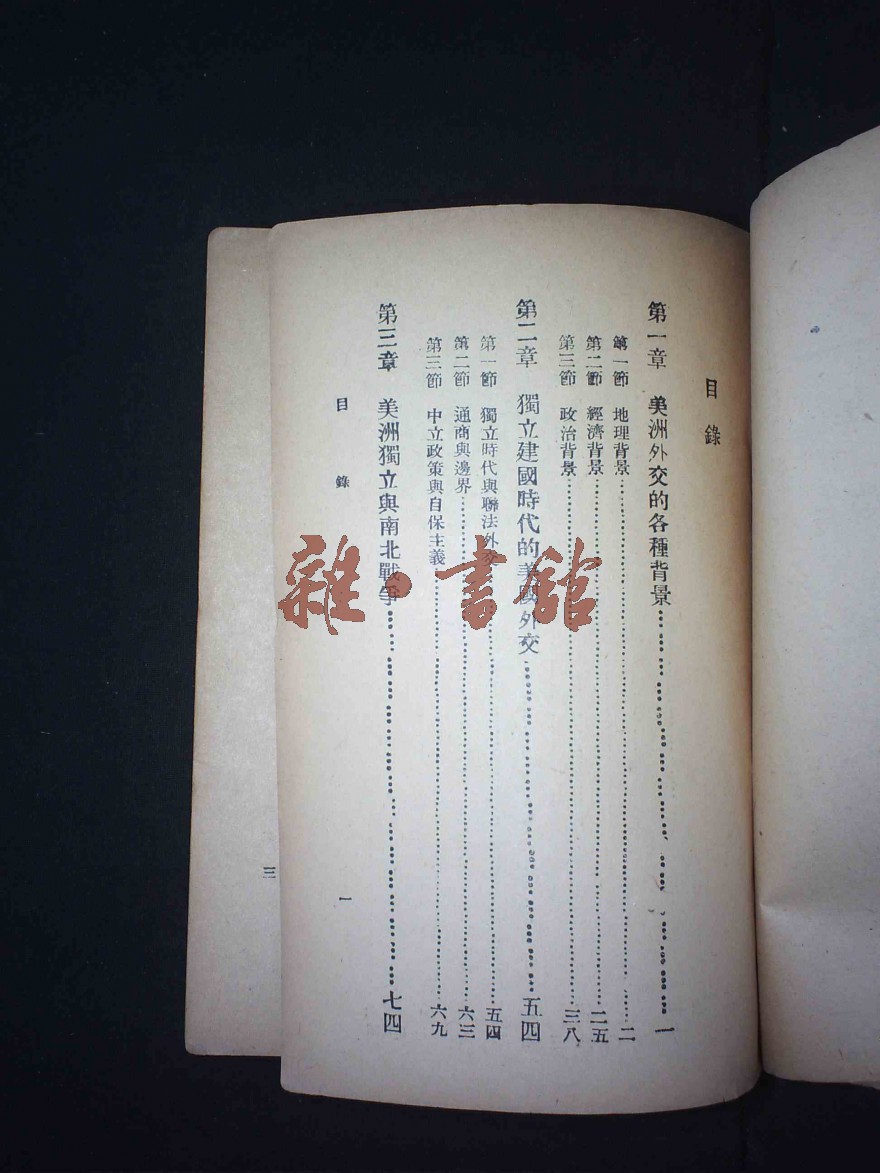 目錄
第一章 美洲外交的各種背景……一
第一節 地理背景……二
第二節 經濟背景……二五
第三節 政治背景……三八
第二章 獨立建國時代的美國外交……五四
第一節 獨立時代與聯法外交……五四
第二節 通商與邊界……六三
第三節 中立政策與自保主義……六九
第三章 美洲獨立與南北戰爭……七四
目錄 一
三
雜·書館